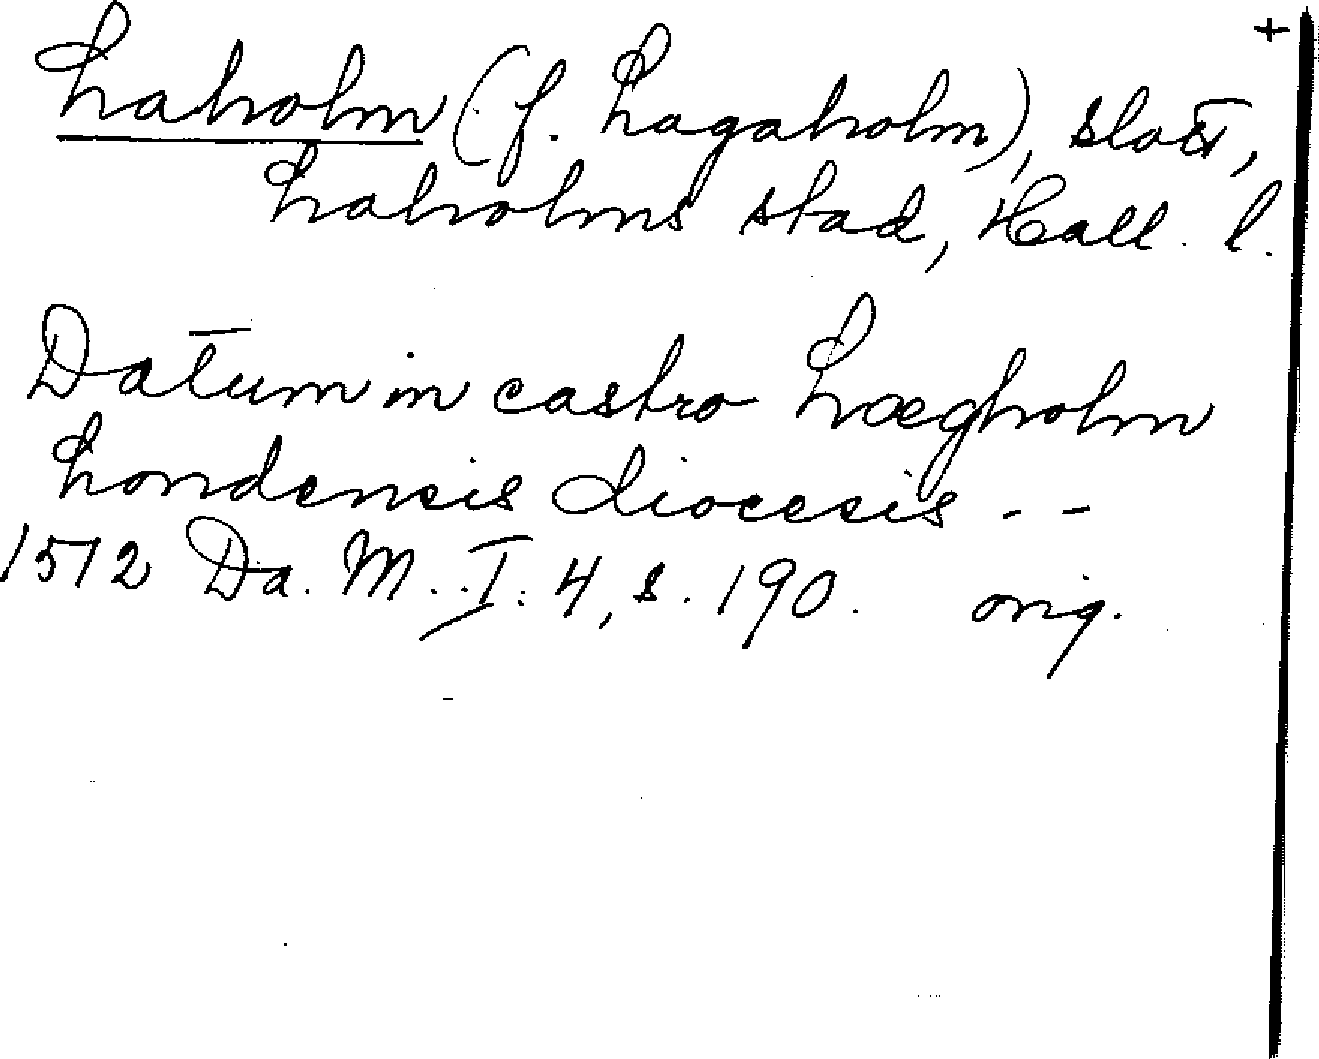 +
Laholm (f. Lagaholm), slott,
Laholms stad, Hall. l.
Datum in castro Lægholm
Londensis diocesis - -
1512 Da. M. I: 4, s. 190. orig.